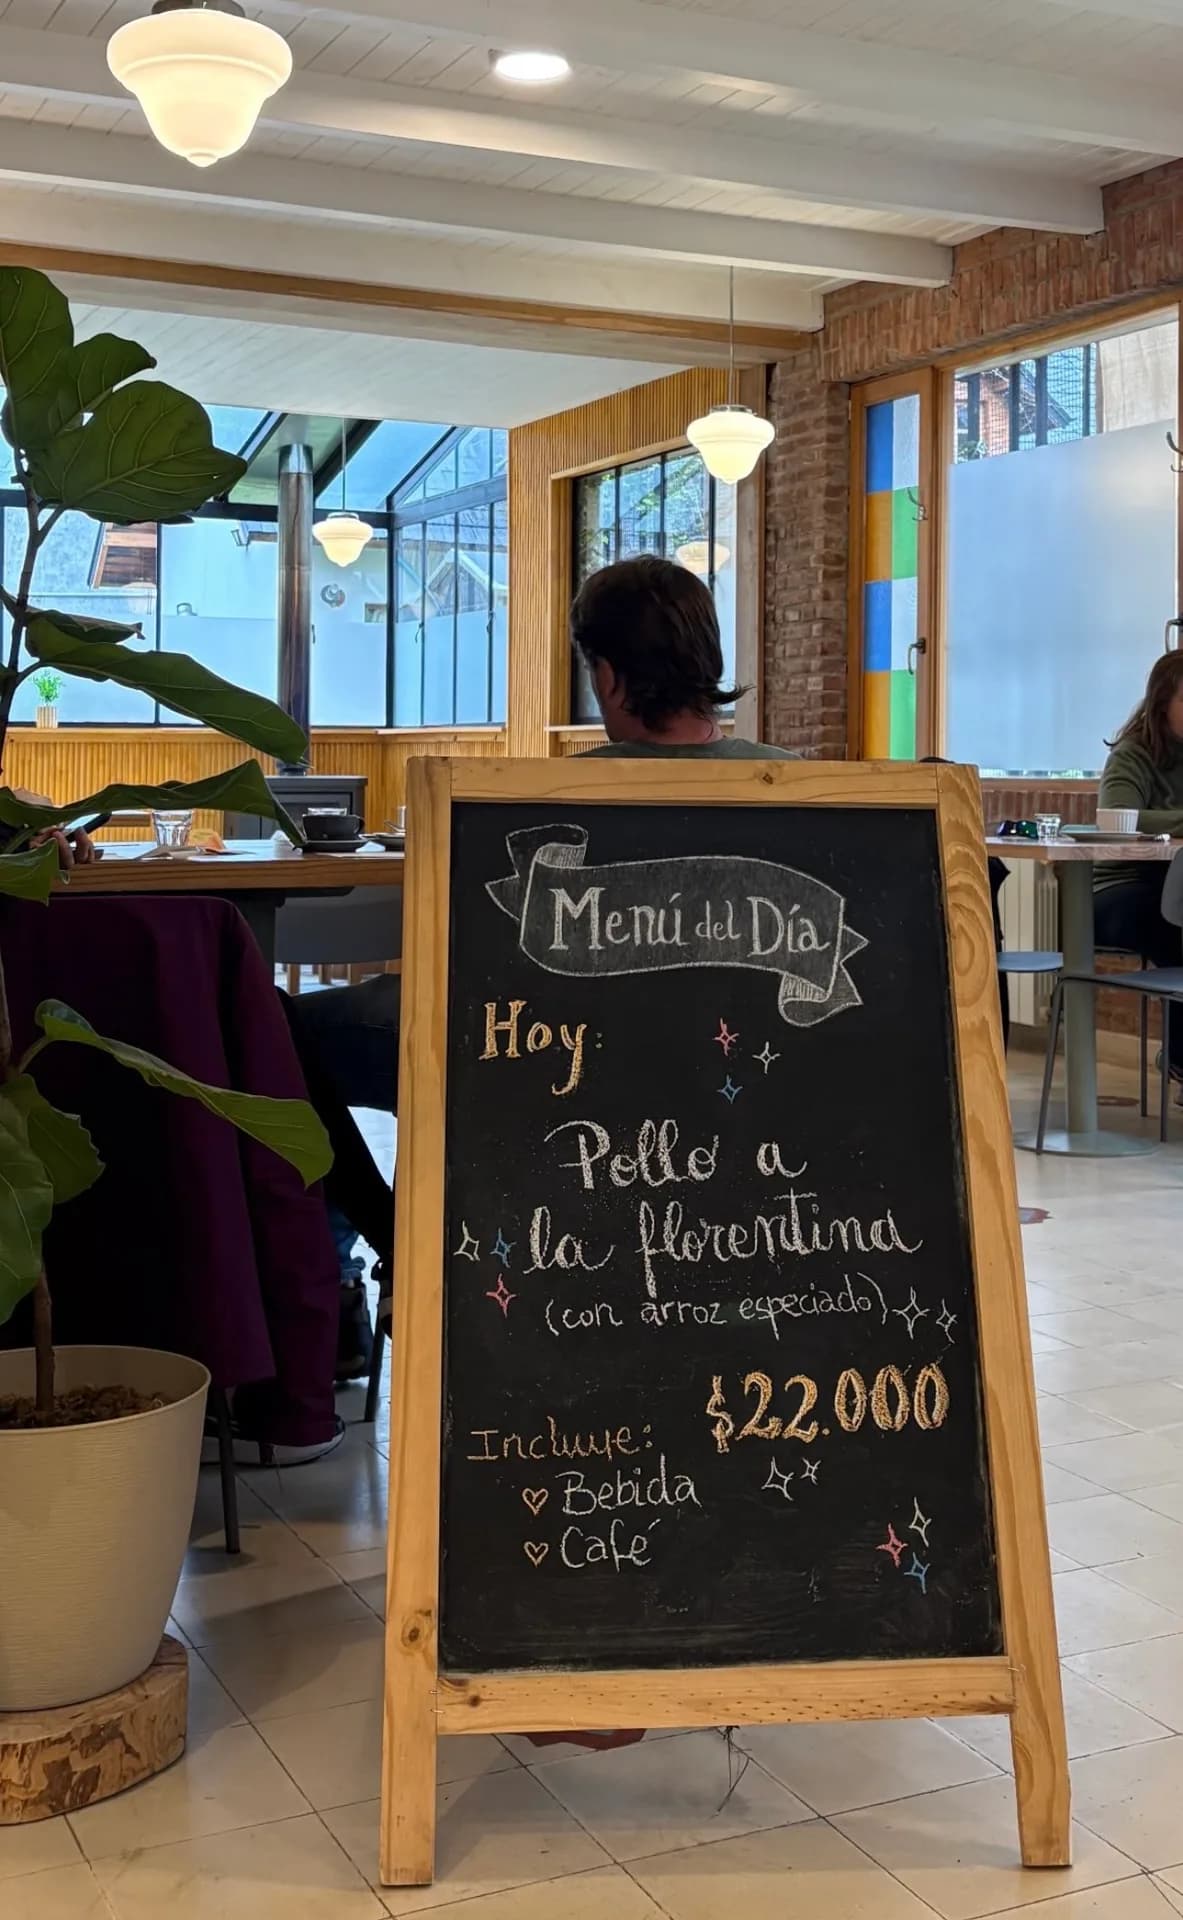 Menú del Día
Hoy:
Pollo a
la florentina
(con arroz especiado)
$22.000
Incluye:
Bebida
Café